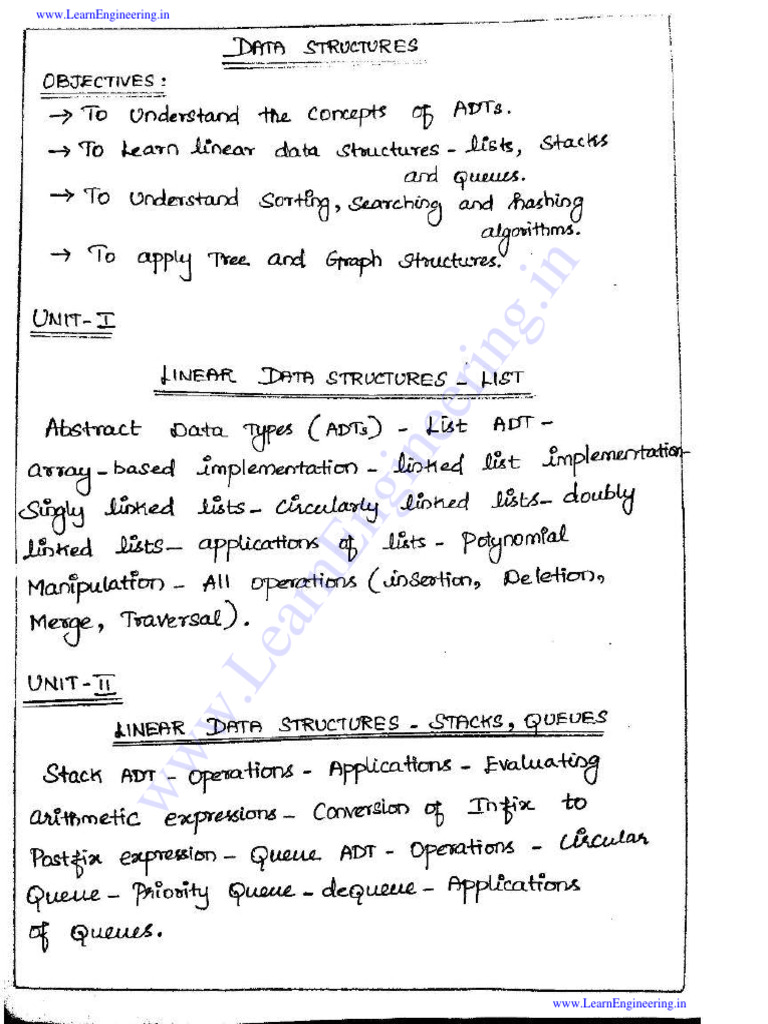 www.LearnEngineering.in
DATA STRUCTURES
OBJECTIVES:
→ To Understand the Concepts of ADTs.
→ To Learn linear data structures - lists, Stacks
and Queues.
→ To Understand Sorting, Searching and hashing
algorithms.
→ To apply Tree and Graph Structures.
UNIT-I
LINEAR DATA STRUCTURES - LIST
Abstract Data Types (ADTs) - List ADT -
array-based implementation - linked list implementation-
Singly linked lists - Circularly linked lists - doubly
linked lists - applications of lists - Polynomial
Manipulation - All operations (insertion, Deletion,
Merge, Traversal).
UNIT-II
LINEAR DATA STRUCTURES - STACKS, QUEUES
Stack ADT - Operations - Applications - Evaluating
arithmetic expressions - Conversion of Infix to
Postfix expression - Queue ADT - Operations - Circular
Queue - Priority Queue - deQueue - Applications
of Queues.
www.LearnEngineering.in
www.LearnEngineering.in